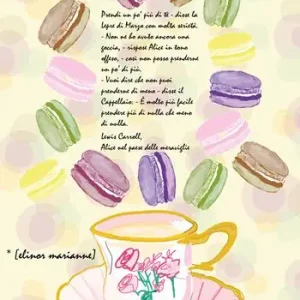 Prendi un po' più di tè - disse la
Lepre di Marzo con molta serietà.
- Non ne ho avuto ancora una
goccia, - rispose Alice in tono
offeso, - così non posso prenderne
un po' di più.
- Vuoi dire che non puoi
prenderne di meno - disse il
Cappellaio: - É molto più facile
prendere più di nulla che meno
di nulla.
Lewis Carroll,
Alice nel paese delle meraviglie
* [elinor marianne]